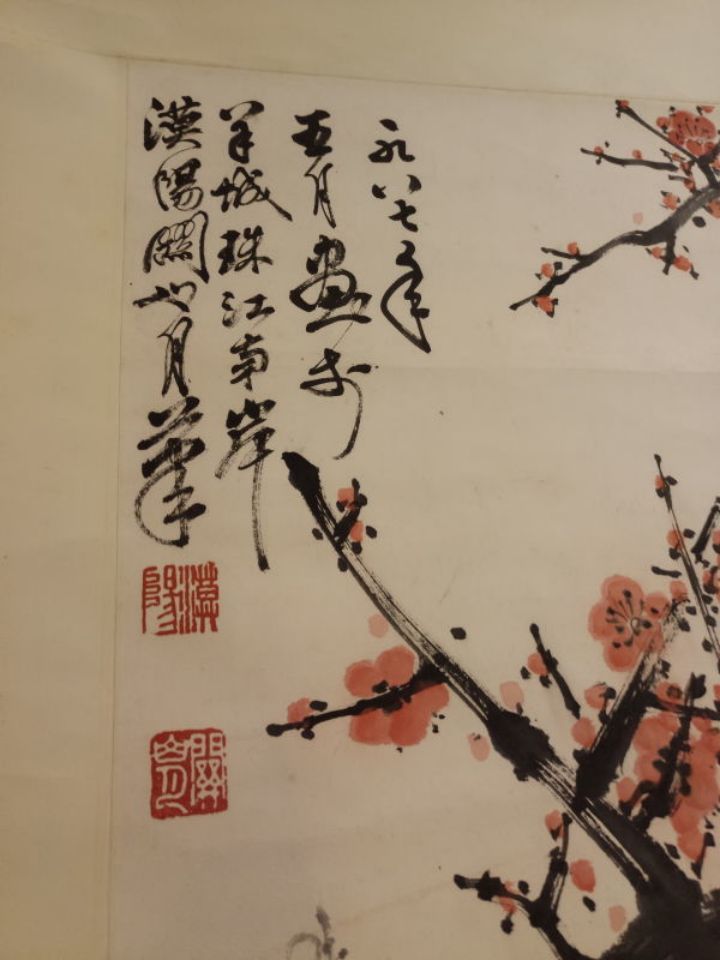 一九八七年
五月畫于
羊城珠江南岸
漠陽關山月筆
漠陽
關山月